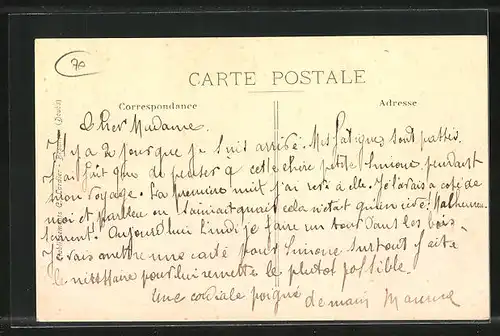 70
CARTE POSTALE
Correspondance
Adresse
Cher Madame.
Il y a 2 jours que je suis arrivé. Mes fatigues sont passées.
J'ai fait que de penser à cette chère petite Simone pendant
mon voyage. La première nuit j'ai rêvé à elle. Je l'avais a coté de
moi et pourtant cela n'était qu'un rêve! Malheureu-
sement. Aujourd'hui Lundi je faire un tour dans les bois.
Je vais mettre une carte pour Simone surtout faite
le nessesaire pour lui remettre le plutot possible.
Une cordiale poignée de main Maurice